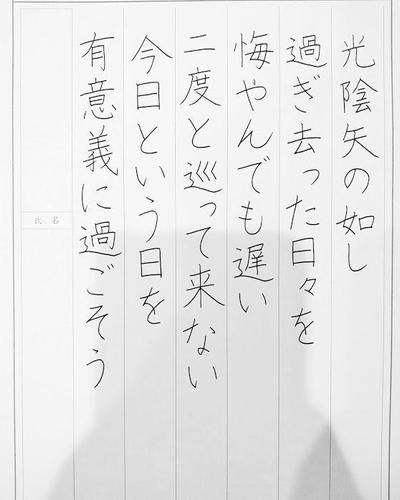 光陰矢の如し
過ぎ去った日々を
悔やんでも遅い
二度と巡って来ない
今日という日を
有意義に過ごそう
氏名